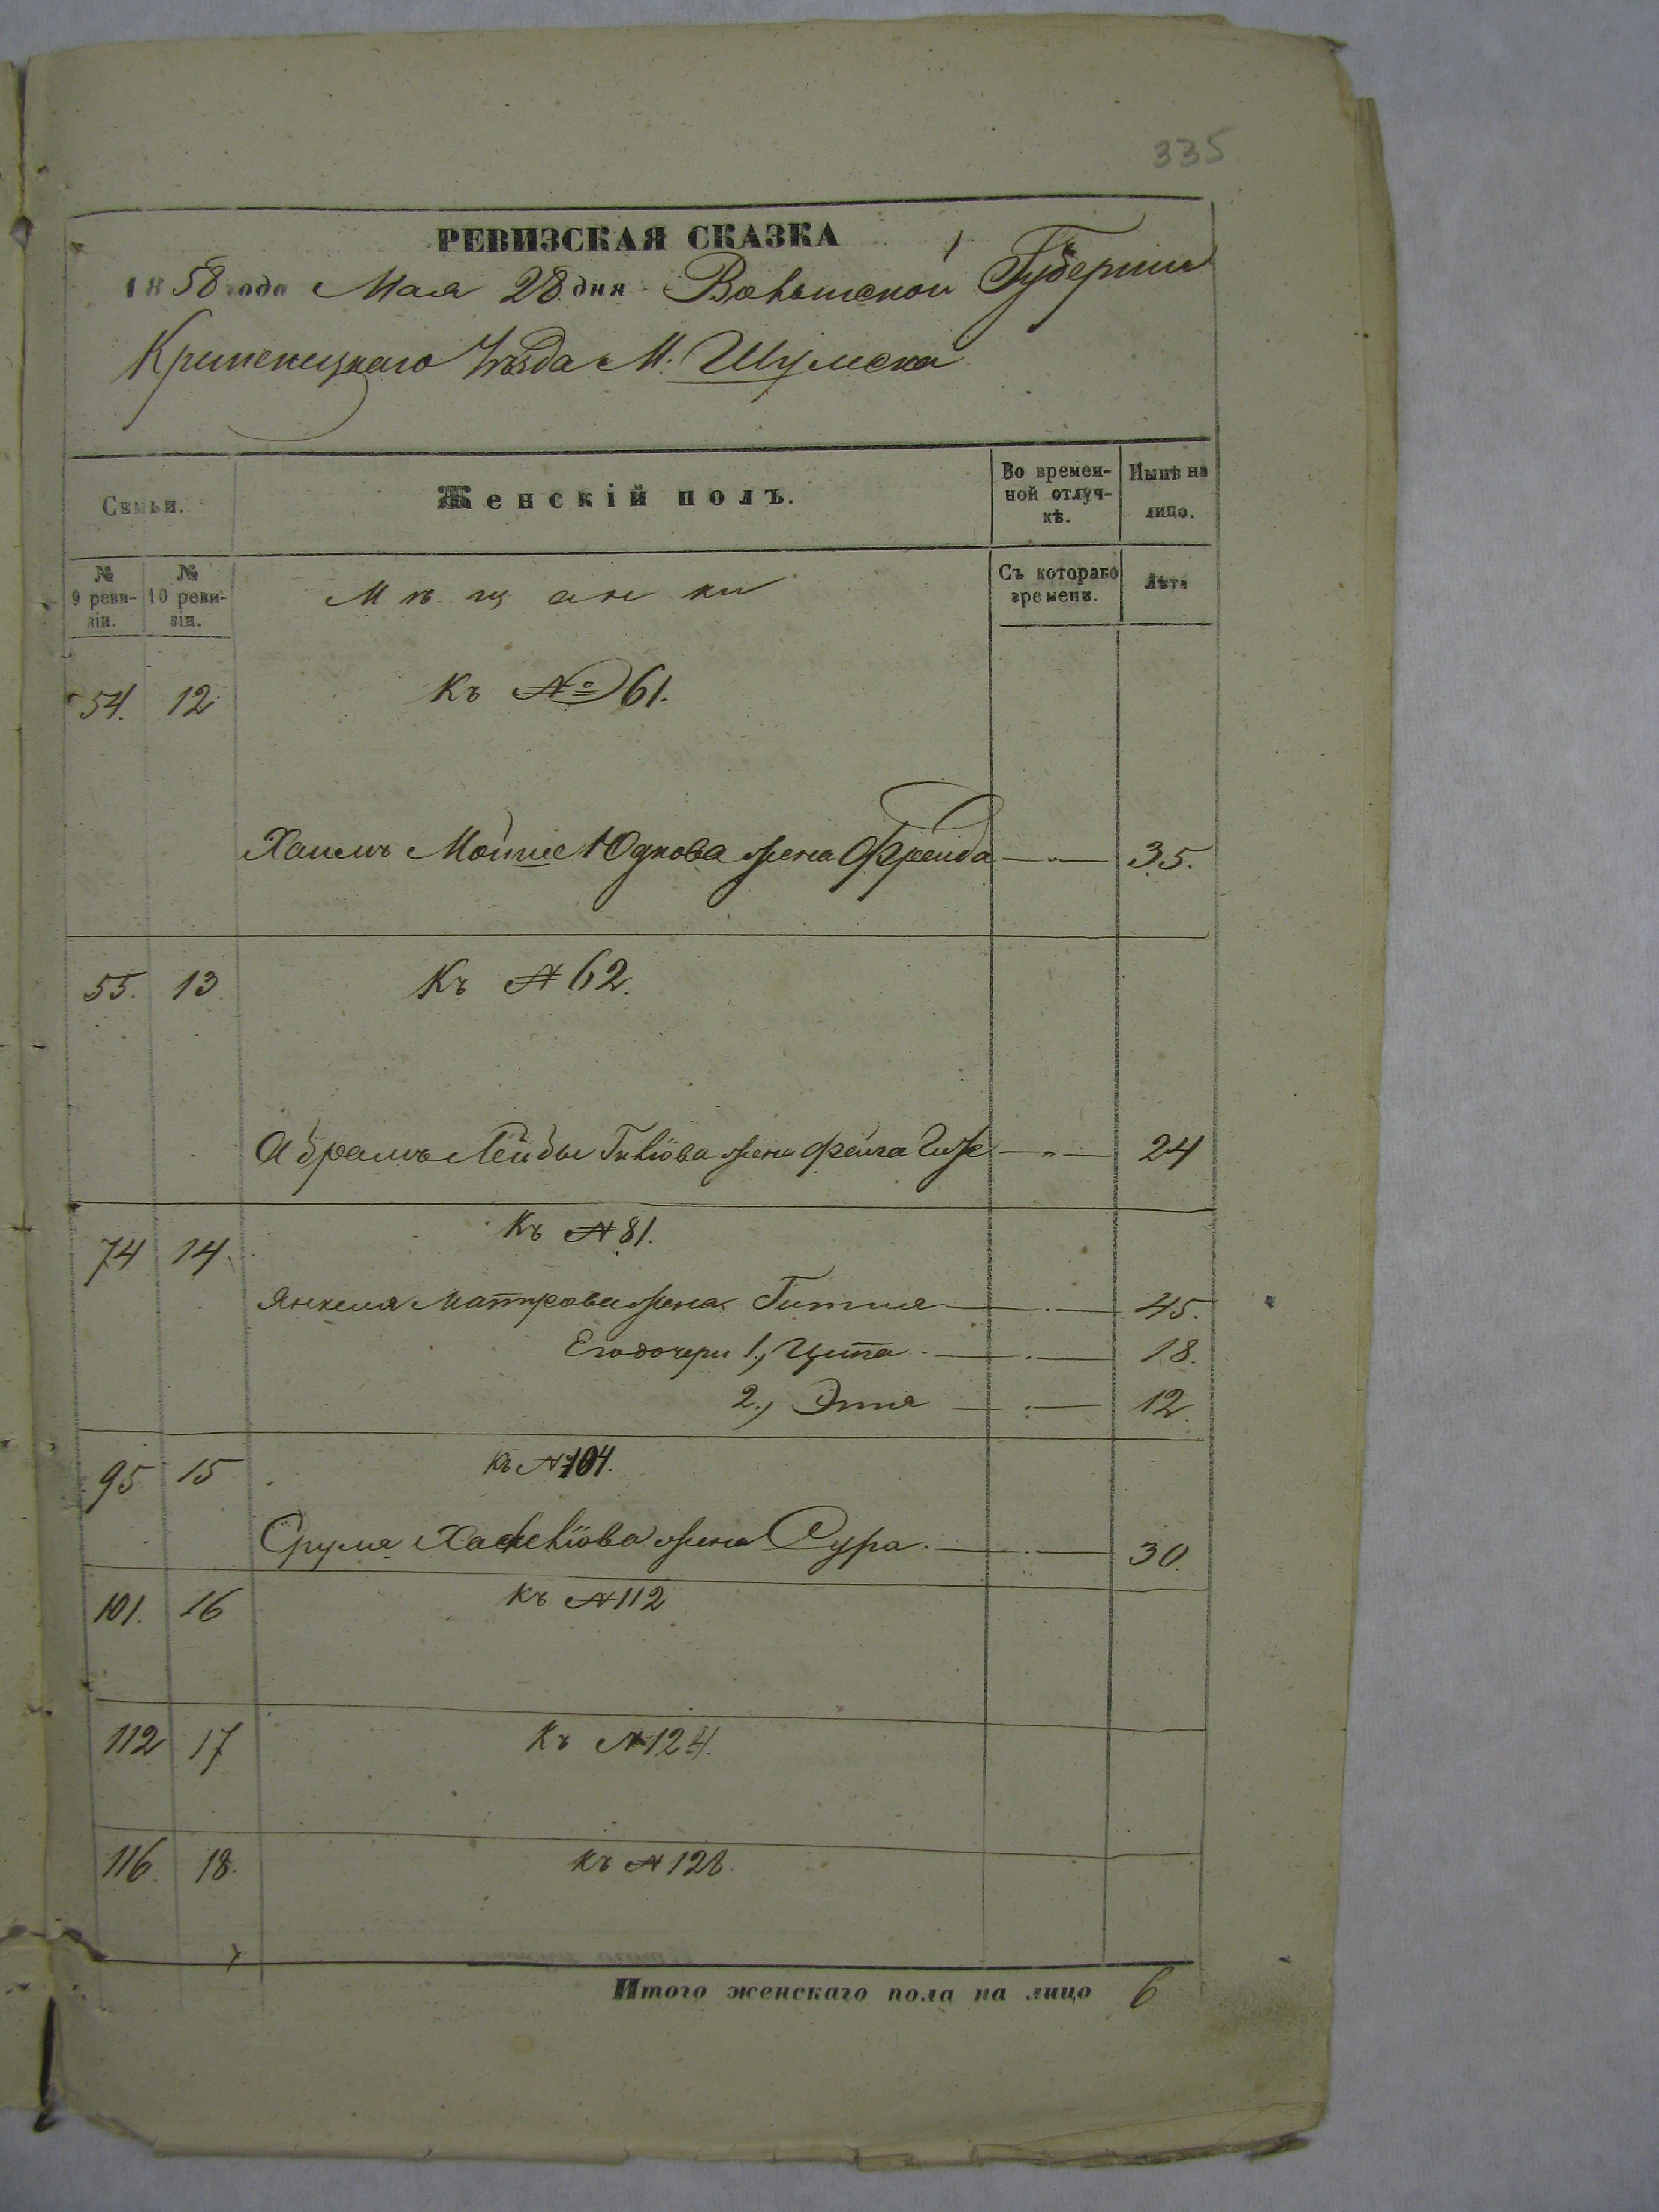 335
РЕВИЗСКАЯ СКАЗКА
1858 года Мая 28 дня Волынской Губерніи
Кременецкаго Уѣзда М. Шумска
Семьи.
Женскій полъ.
Во времен-
ной отлуч-
кѣ.
Нынѣ на
лицо.
№
9 реви-
зіи.
№
10 реви-
зіи.
Мѣщанки
Съ котораго
времени.
Лѣта
54. 12 Къ № 61.
Хаимъ Мошие Юдкова жена Фрейда 35.
55. 13 Къ № 62.
Абрамъ Лейбы жена Фейга 24
74 14 Къ № 81.
Янкеля жена Гитля 45.
Его дочери 1., Ципа 18.
2., Этля 12.
95 15 Къ № 104.
Срула Хаскелiова жена Сура. 30.
101. 16 Къ № 112
112 17 Къ № 124.
116. 18. Къ № 128.
Итого женскаго пола на лицо 6